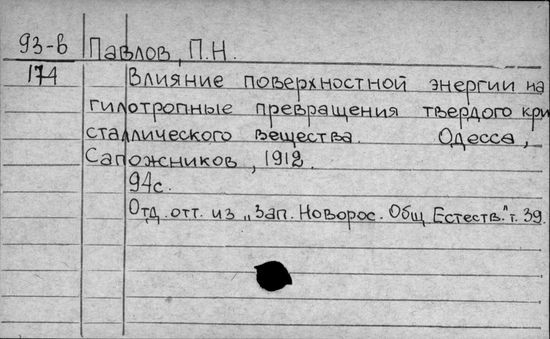 93-в Павлов, П.Н.
174 Влияние поверхностной энергии на
гилотропные превращения твердого кри
сталлического вещества. Одесса,
Сапожников, 1912.
94с.
Отд. отт. из „Зап. Новорос. Общ. Естеств." т. 39.